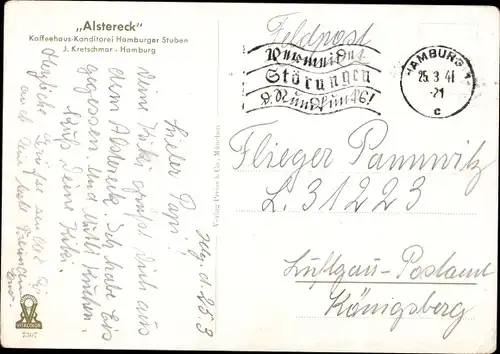 „Alstereck"
Kaffeehaus-Konditorei Hamburger Stuben
J. Kretschmar · Hamburg
Feldpost
Vermeidet
Störungen
d. Rundfunks!
HAMBURG 1
25.3.41
-21
c
Flieger Pannwitz
L. 31223
Luftgau-Postamt
Königsberg
Hbg. d. 25.3
Lieber Papi!
Deine Kiki grüßt Dich aus
dem Alstereck. Ich habe Eis
gegessen. Und Mutti Kuchen.
Kuß Deine Kiki.
Herzliche Grüße
auch
VITACOLOR
7307